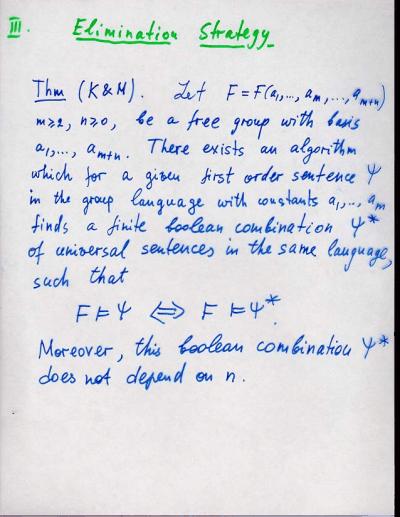 III. Elimination Strategy
Thm (K&M). Let F = F(a₁,..., aₘ,..., aₘ₊ₙ)
m≥2, n≥0, be a free group with basis
a₁,..., aₘ₊ₙ. There exists an algorithm
which for a given first order sentence Ψ
in the group language with constants a₁,..., aₘ
finds a finite boolean combination Ψ*
of universal sentences in the same language,
such that
F ⊨ Ψ ⟺ F ⊨ Ψ*.
Moreover, this boolean combination Ψ*
does not depend on n.